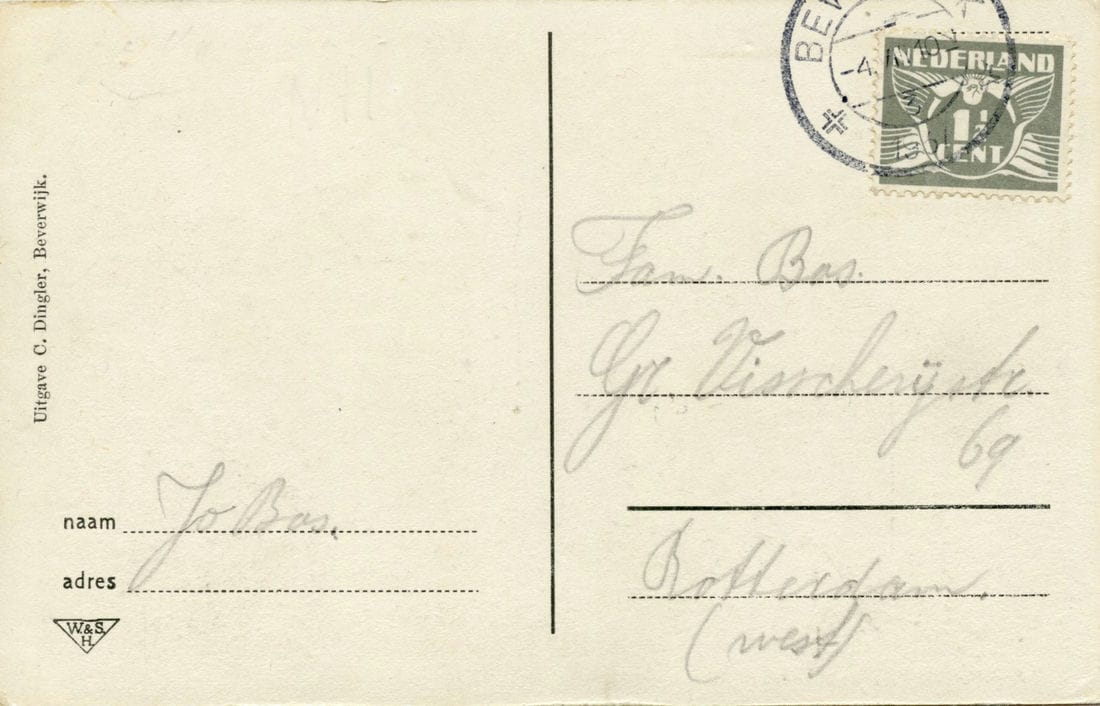 Uitgave C. Dingler, Beverwijk.
NEDERLAND
1½
CENT
Fam. Bos.
Gr. Visscherijstr.
69
Rotterdam.
(west)
naam Jo Bos.
adres
W.&S.
H.